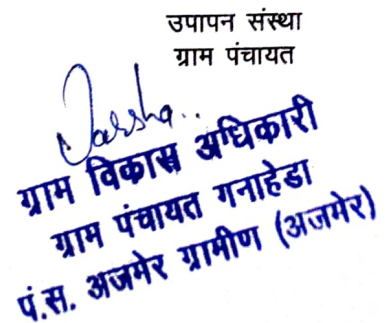 उपापन संस्था
ग्राम पंचायत
Varsha..
ग्राम विकास अधिकारी
ग्राम पंचायत गनाहेडा
पं.स. अजमेर ग्रामीण (अजमेर)